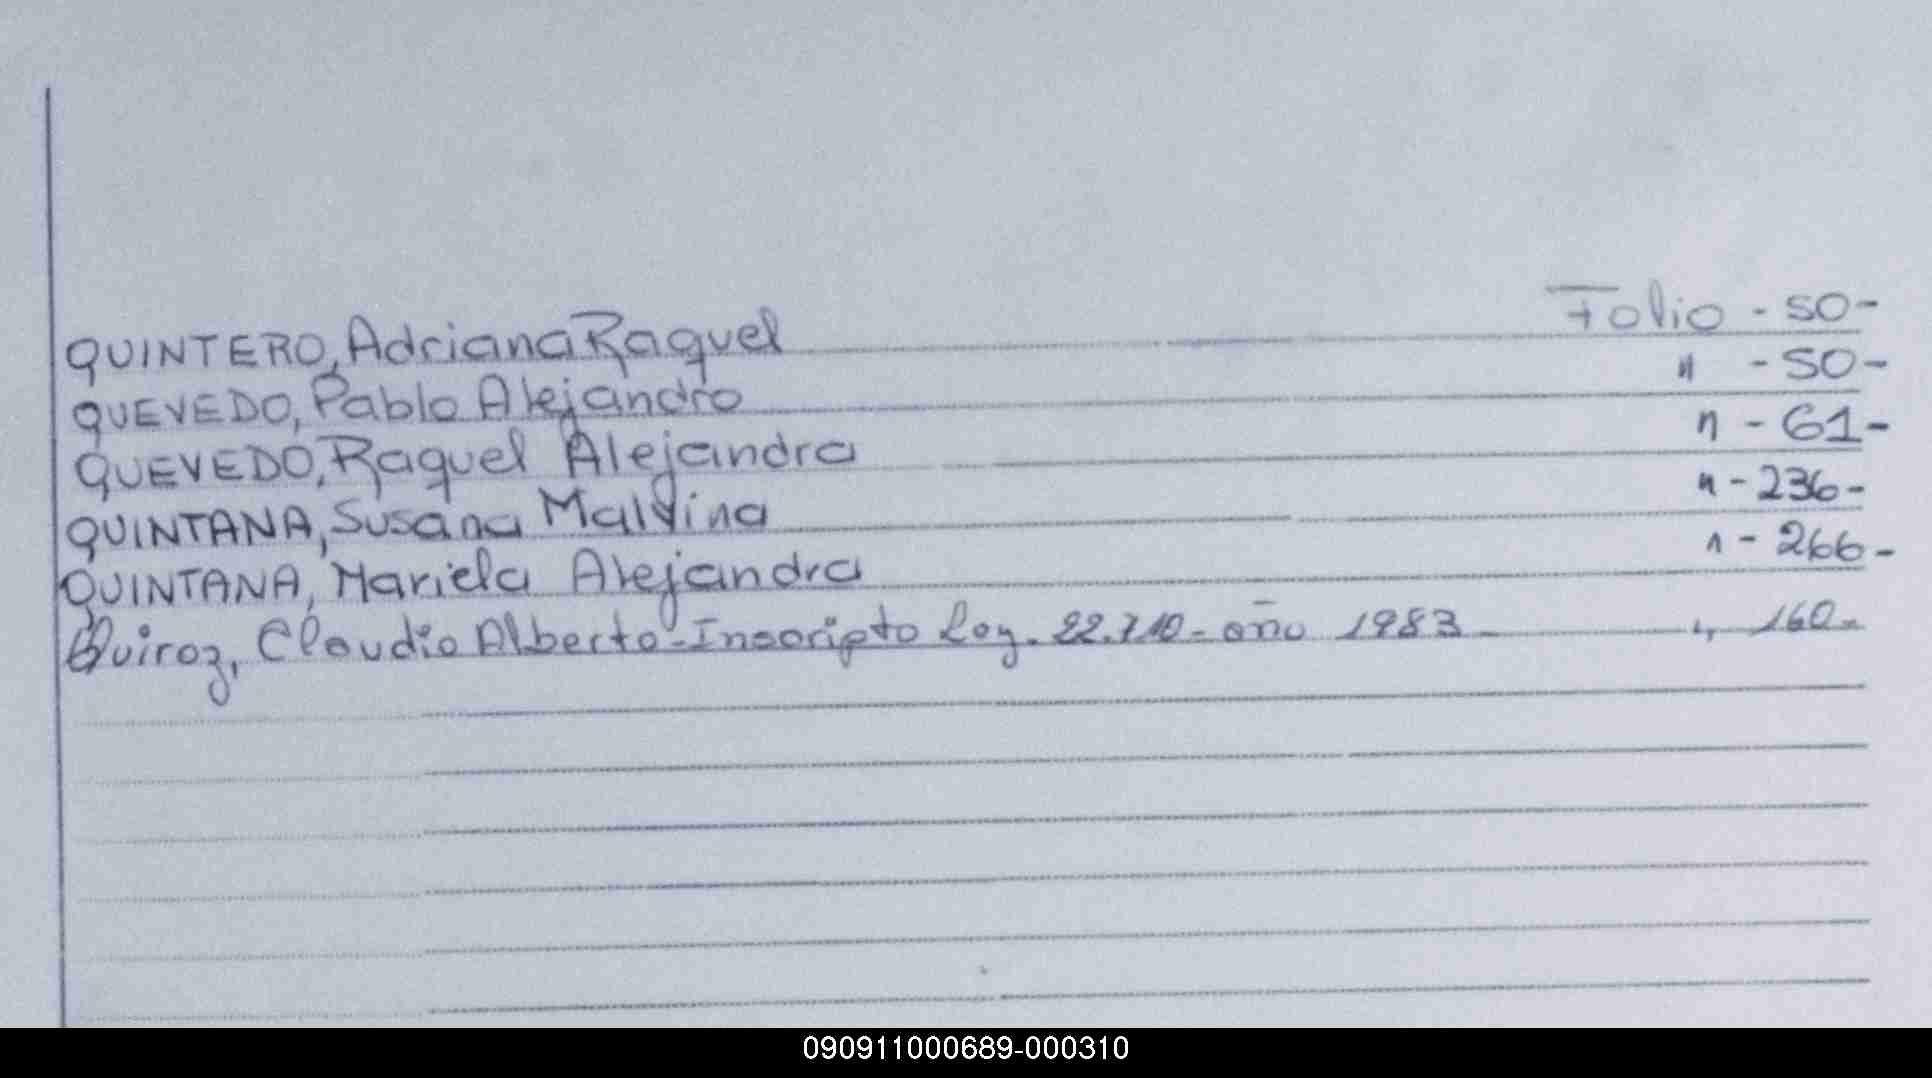 QUINTERO, Adriana Raquel Folio - 50 -
QUEVEDO, Pablo Alejandro " - 50 -
QUEVEDO, Raquel Alejandra " - 61 -
QUINTANA, Susana Malvina " - 236 -
QUINTANA, Mariela Alejandra " - 266 -
Quiroz, Claudio Alberto - Inscripto Ley. 22.710 - año 1983 - " 160 -
090911000689-000310